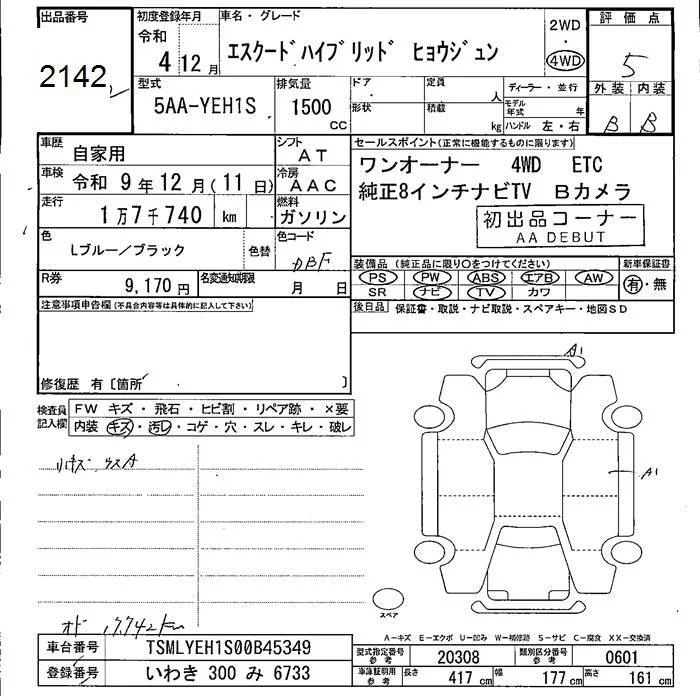 出品番号
2142
初度登録年月
令和
4 12 月
車名・グレード
エスクード ハイブリッド ヒョウジュン
2WD
・
4WD
評価点
5
外装 内装
B B
型式
5AA-YEH1S
排気量
1500
CC
ドア・
形状
定員
人
積載
kg
ディーラー・並行
モデル
年式 年
ハンドル 左・右
車歴
自家用
シフト
AT
車検 令和 9年12月(11日)
冷房
AAC
走行
1万7千740 km
燃料
ガソリン
色
Lブルー/ブラック
色替
色コード
DBF
R券
9,170円
名変通知期限
月 日
セールスポイント(正常に機能するものに限ります)
ワンオーナー 4WD ETC
純正8インチナビTV Bカメラ
初出品コーナー
AA DEBUT
装備品 (純正品に限り〇をつけてください)
新車保証書
PS PW ABS エアB AW
SR ナビ TV カワ
有・無
後日品 保証書・取説・ナビ取説・スペアキー・地図SD
注意事項申告欄(不具合内容等は具体的に記入して下さい)
修復歴 有〔箇所 〕
検査員
記入欄
FW キズ・飛石・ヒビ割・リペア跡・×要
内装 キズ・汚レ・コゲ・穴・スレ・キレ・破レ
A1
A1
スペア
オド 17,742km
A-キズ E-エクボ U-凹み W-補修跡 S-サビ C-腐食 XX-交換済
車台番号
TSMLYEH1S00B45349
型式指定番号
参考
20308
類別区分番号
参考
0601
登録番号
いわき 300 み 6733
車庫証明用
参考
長さ 417 cm 幅 177 cm 高さ 161 cm